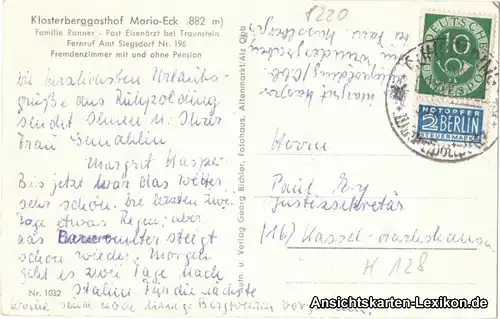 Klosterberggasthof Maria-Eck (882 m)
Familie Ranner - Post Eisenärzt bei Traunstein
Fernruf Amt Siegsdorf Nr. 196
Fremdenzimmer mit und ohne Pension
Die herzlichsten Urlaubs-
grüße aus Ruhpolding
sendet Ihnen u. Ihrer
Frau Gemahlin
Margret Kasper
Bis jetzt war das Wetter
sehr schön. Die letzten zwei
Tage etwas Regen; aber
das Barometer steigt
schon wieder. Morgen
geht es zwei Tage nach
Italien. Für die nächste
Woche sind noch einige
Nr. 1032
Auln. u. Verlag Georg Bichler, Fotohaus, Altenmarkt/Alz Obb
1220
Margret Kasper
Ruhpolding/Obb
DEUTSCHE
10
BUNDESPOST
NOTOPFER
2 BERLIN
STEUERMARKE
Herrn
Paul
Justizsekretär
(16) Kassel-
H 128
Ansichtskarten-Lexikon.de